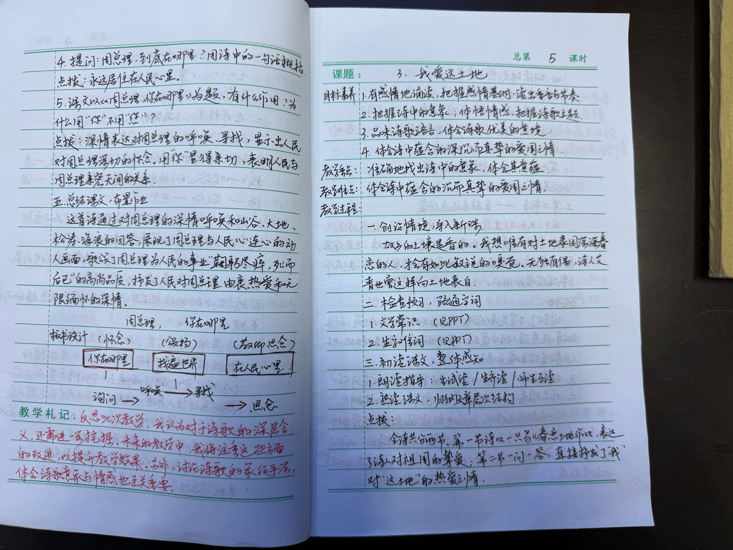 4. 提问:周总理,到底在哪里?用诗中的一句话概括
点拨:永远居住在人民心里。
5. 课文以《周总理,你在哪里》为题,有什么作用?为
什么用“你”不用“您”?
点拨:深情表达对周总理的呼唤、寻找,显示出人民
对周总理深切的怀念,用“你”显得亲切,表明人民与
周总理亲密无间的关系
五、总结课文,布置作业
这首诗通过对周总理的深情呼唤和山谷、大地、
松涛、海浪的回答,展现了周总理与人民心连心的动
人画面,歌颂了周总理为人民的事业“鞠躬尽瘁,死而
后已”的高尚品质,抒发了人民对周总理由衷热爱和无
限缅怀的深情。
周总理, 你在哪里
板书设计 (怀念) (敬仰)
你在哪里 我遍世界 在人民心里
询问 呼唤 寻找 思念
教学札记:反思此次教学,我认为对于诗歌的深层含
义,还需进一步挖掘,未来的教学中,我将注重这一方面
的改进,以提升教学效果。另外,诗歌的象征手法,
体会诗歌意象与情感也至关重要。
总第 5 课时
课题: 3. 我爱这土地
1. 有感情地诵读,把握感情基调,读出重音与节奏
2. 把握诗中的意象,体悟情感,把握诗歌主旨
3. 品味诗歌语言,体会诗歌优美的意境
4. 体会诗中蕴含的深沉而真挚的爱国之情
教学重点:准确地找出诗中的意象,体会其意蕴
教学难点:体会诗中蕴含的深沉而真挚的爱国之情
教学过程:
一、创设情境,导入新课
故乡的土壤是香的,我想唯有对土地泰国深深眷
恋的人,才会有如此敏锐的嗅觉,无独有偶,诗人艾
青也曾这样向土地表白。
二、检查预习,疏通字词
1. 文学常识 (见PPT)
2. 生字信词 (见PPT)
三、初读课文,整体感知
1. 朗读指导:
2. 熟读课文,归纳文章层次结构
点拨:
全诗共分两节,第一节诗以一只鸟儿眷恋土地作比,表达
了诗人对祖国的挚爱,第二节一问一答,直接抒发了“我”
对“这土地”的热爱之情。